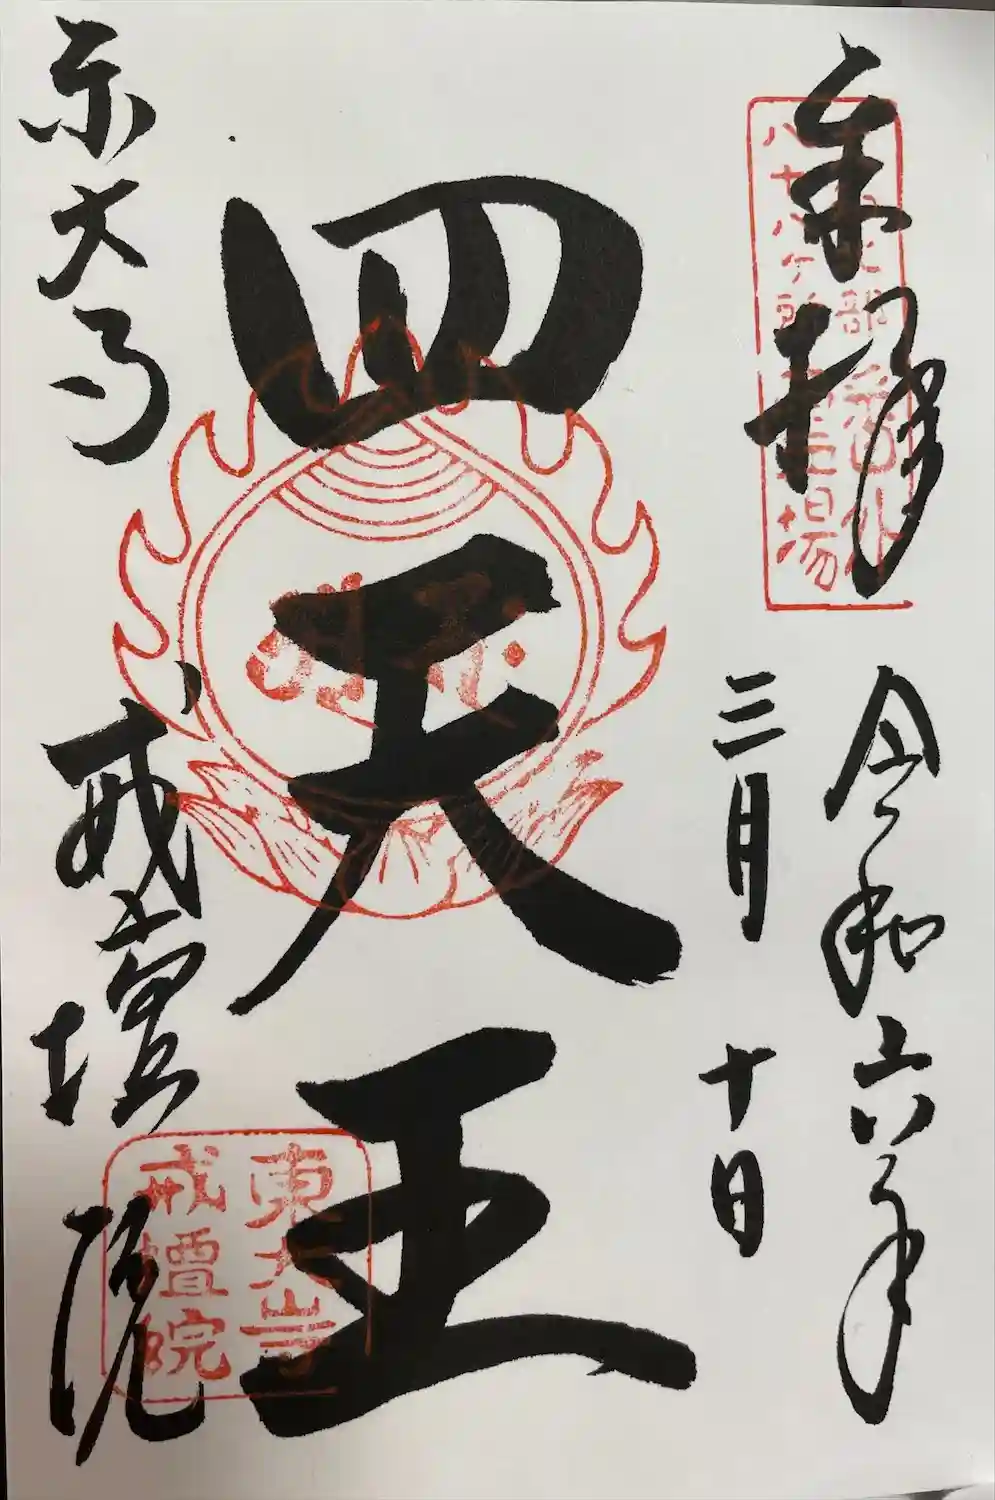 奉拝
令和六年
三月十日
四天王
東大寺
戒壇院
八十八ヶ所
場
東大寺
戒壇院